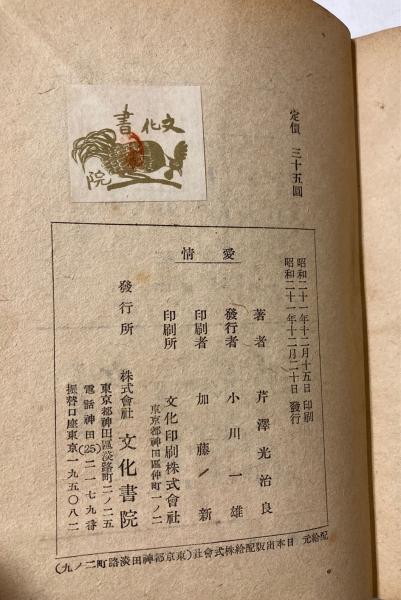 文化書院
定價 三十五圓
愛情
昭和二十一年十二月十五日 印刷
昭和二十一年十二月二十日 發行
著者 芹澤光治良
發行者 小川一雄
印刷者 加藤新
印刷所 文化印刷株式會社
東京都神田區仲町一ノ二
發行所 株式會社 文化書院
東京都神田區淡路町二ノ二五
電話神田(25)二一七九番
振替口座東京一九五〇八二
配給元 日本出版配給株式會社(東京都神田淡路町二ノ九)